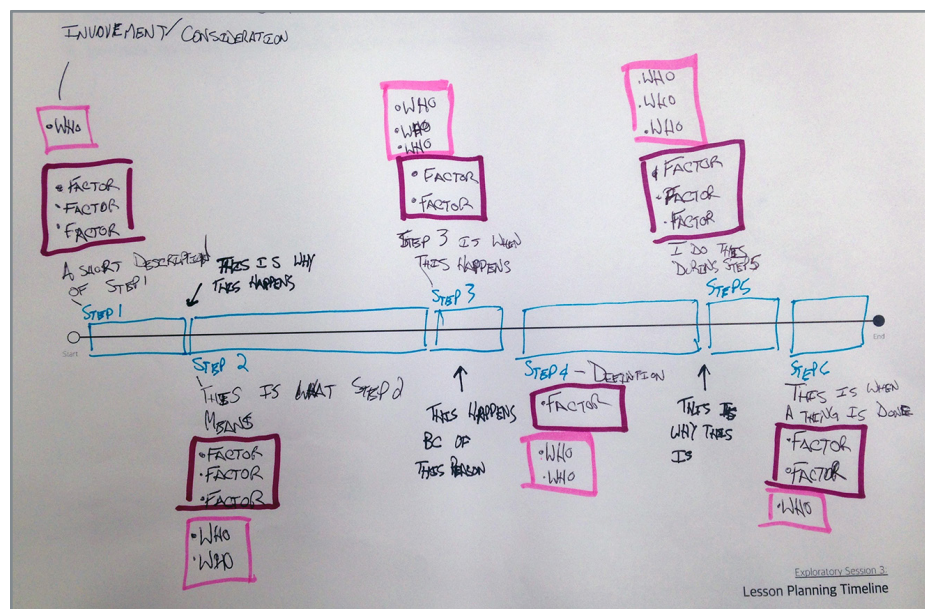 INVOVEMENT/CONSIDERATION
• WHO
• FACTOR
• FACTOR
• FACTOR
A SHORT DESCRIPTION
OF STEP 1
STEP 1
THIS IS WHY
THIS HAPPENS
STEP 2
THIS IS WHAT STEP 2
MEANS
• FACTOR
• FACTOR
• FACTOR
• WHO
• WHO
• WHO
• WHO
• WHO
• FACTOR
• FACTOR
STEP 3 IS WHEN
THIS HAPPENS
STEP 3
THIS HAPPENS
BC OF
THIS REASON
STEP 4 – DEFINTION
• FACTOR
• WHO
• WHO
• WHO
• WHO
• WHO
• FACTOR
• FACTOR
• FACTOR
I DO THIS
DURING STEP 5
STEP 5
THIS IS
WHY THIS
IS
STEP 6
THIS IS WHEN
A THING IS DONE
• FACTOR
• FACTOR
• WHO
Start
End
Exploratory Session 3:
Lesson Planning Timeline